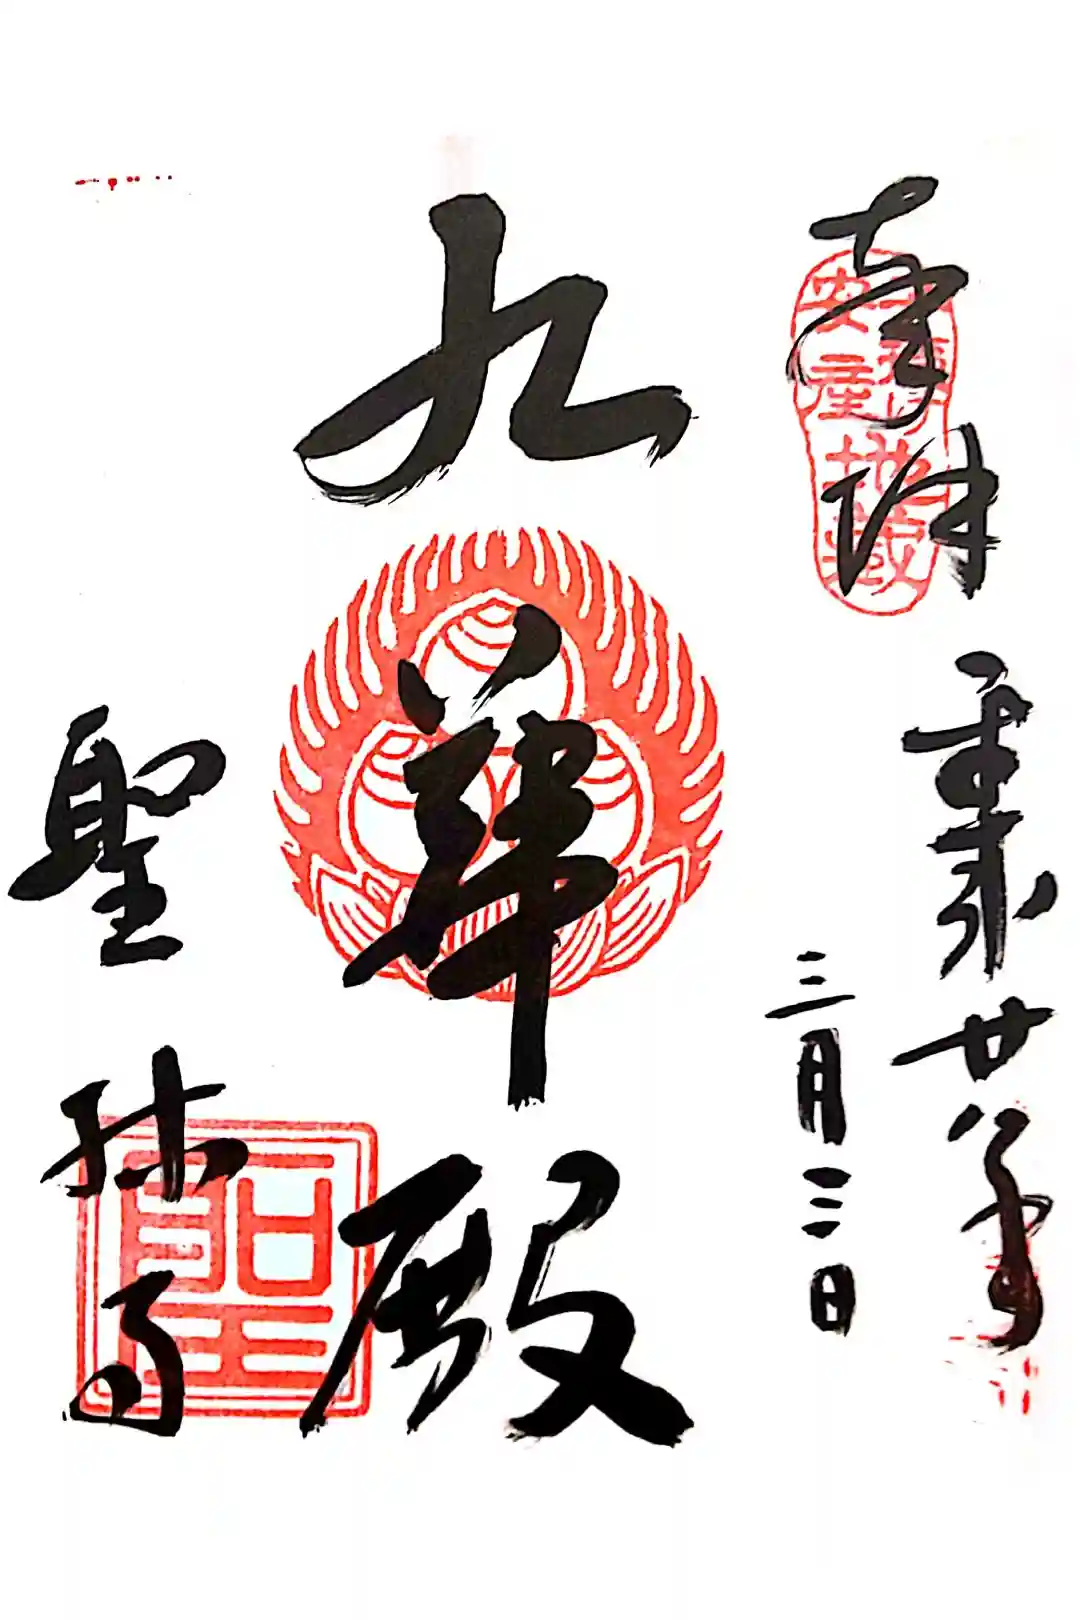 奉拝
平成廿八年
三月三日
安産
地蔵
九華殿
聖林寺
聖